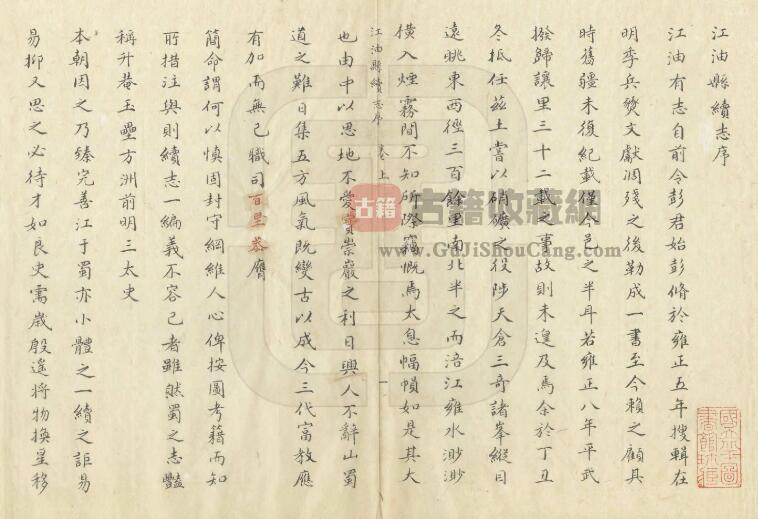 江油縣續志序
江油有志自前令彭君始彭脩於雍正五年搜輯在
明季兵燹文獻凋殘之後勒成一書至今賴之顧其
時舊疆未復紀載僅今邑之半耳若雍正八年平武
撥歸讓里三十二載之事故則未遑及焉余於丁丑
冬抵任茲土嘗以硝礦之役陟天倉三奇諸峯縱目
遠眺東西徑三百餘里南北半之而涪江雍水渺渺
橫入煙霧間不知所際竊慨焉太息幅幀如是其大
江油縣續志序 卷上 一
也由中以思地不愛寶崇巖之利日興人不辭山蜀
道之難日集五方風氣既變古以成今三代富教應
有加而無已職司百里忝膺
簡命謂何以慎固封守綱維人心俾按圖考籍而知
所措注與則續志一編義不容已者雖然蜀之志豔
稱升菴玉壘方洲前明三太史
本朝因之乃臻完善江于蜀亦小體之一續之詎易
易抑又思之必待才如良史需歲殷遙將物換星移
古籍 古籍收藏網
www.GuJiShouCang.com